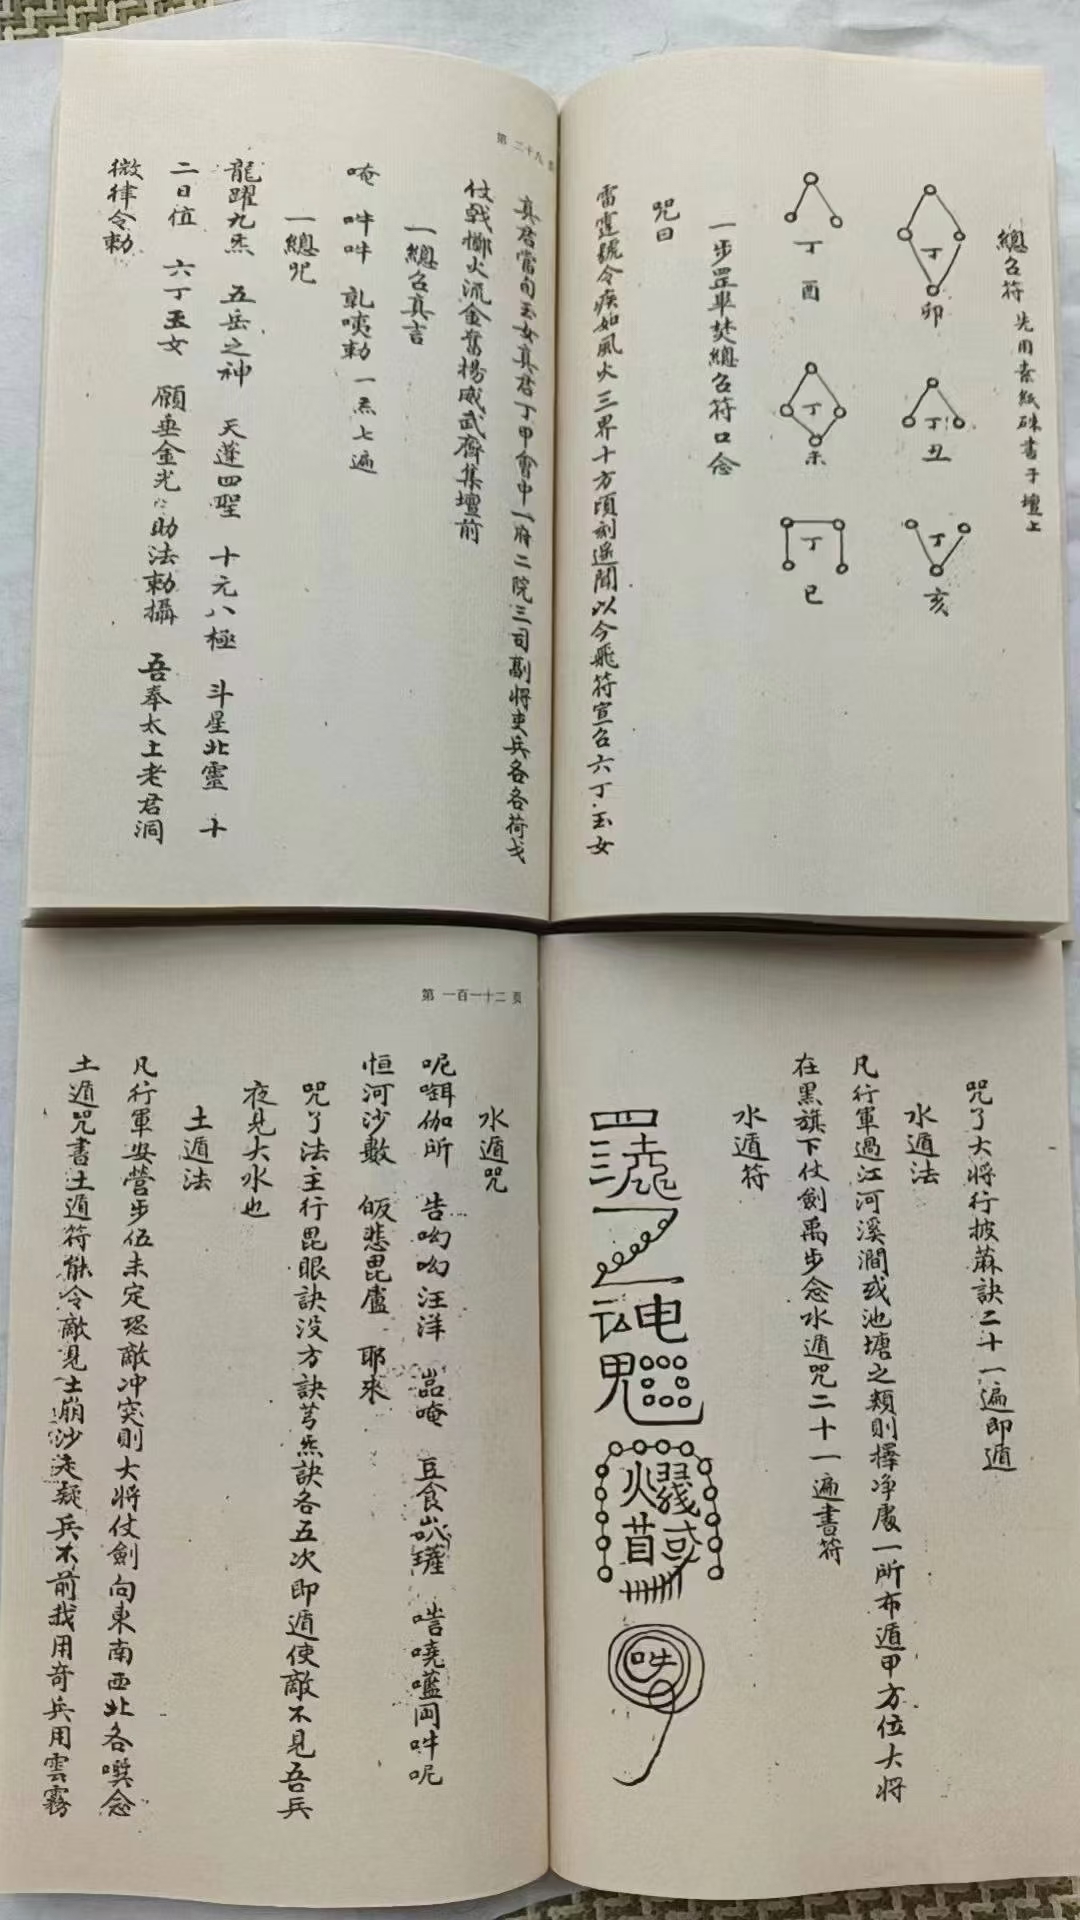 總召符 先用素紙硃書于壇上
丁卯
丁丑
丁亥
丁酉
丁未
丁巳
一步罡畢焚總召符口念
咒曰
雷霆號令疾如風火三界十方頃刻遙聞以今飛符宣召六丁玉女
第二十九頁
真君當旬玉女真君丁甲會中一府二院三司副將吏兵各各荷戈
仗戟擲火流金奮揚威武齊集壇前
一總召真言
唵 吽吽 㖠咦勑 一炁七遍
一總咒
龍躍九炁 五岳之神 天蓬四聖 十元八極 斗星北靈 十
二日值 六丁玉女 願垂金光 助法勑攝 吾奉太上老君洞
微律令勑
咒了大將行披蔴訣二十一遍即遁
水遁法
凡行軍過江河溪澗或池塘之類則擇净處一所布遁甲方位大將
在黑旗下仗劍禹步念水遁咒二十一遍書符
水遁符
吽
第一百一十二頁
水遁咒
呢㖇伽所 告呦呦汪洋 唵 豆食 嘵 吽呢
恒河沙數 皈悲毘盧 耶來
咒了法主行毘眼訣没方訣芎炁訣各五次即遁使敵不見吾兵
夜見大水也
土遁法
凡行軍安營步伍未定恐敵冲突則大將仗劍向東南西北各噀念
土遁咒書土遁符能令敵見土崩沙走疑兵不前我用奇兵用雲霧